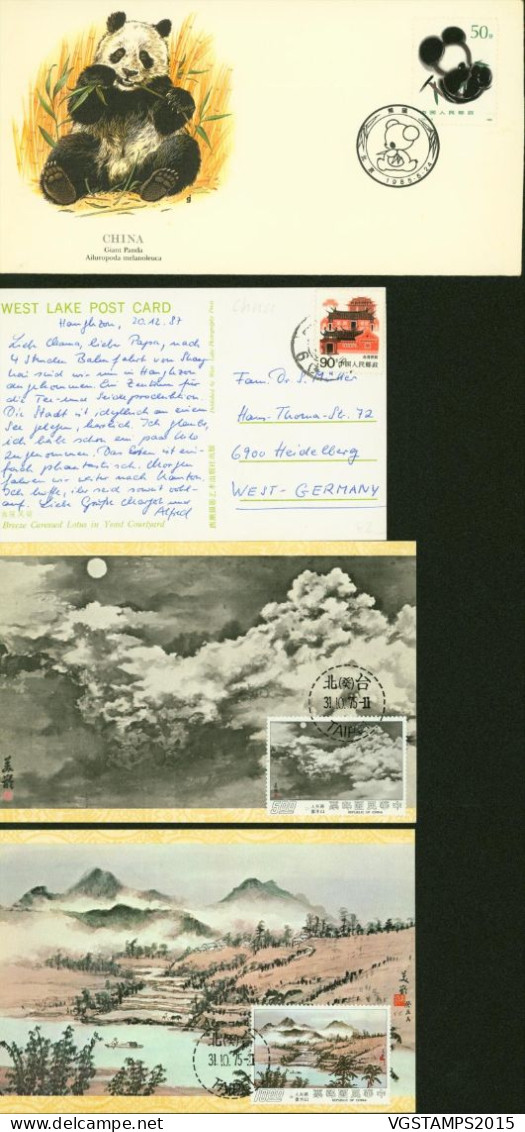 50分
中国人民邮政
1985.5.24
CHINA
Giant Panda
Ailuropoda melanoleuca
WEST LAKE POST CARD
China
Hanghzou, 20.12.87
Liebe Omama, lieber Papa, nach
4 Stunden Bahnfahrt von Shang
hai sind wir nun in Hanghzou
angekommen. Ein Zentrum für
die Tee- und Seideproduktion.
Die Stadt ist, idyllisch an einem
See gelegen, herrlich. Ich glaube,
ich habe schon ein paar Kilo
zugenommen. Das Essen ist ein-
fach phantastisch. Morgen
fahren wir weiter nach Kanton.
Ich hoffe, ihr seid soweit wohl-
auf. Liebe Grüße
Alfred
Breeze Caressed Lotus in Yeast Courtyard
90分
中国人民邮政
Fam. Dr. S. Müller
Hans-Thoma-St. 72
6900 Heidelberg
WEST-GERMANY
北(癸)台
31.10.75-11
TAIPEI
500
票郵國民華中
REPUBLIC OF CHINA
北台
31.10.75
TAIPEI
1000
票郵國民華中
REPUBLIC OF CHINA
VGSTAMPS2015